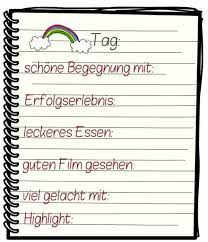 Tag:
schöne Begegnung mit:
Erfolgserlebnis:
leckeres Essen:
guten Film gesehen:
viel gelacht mit:
Highlight: